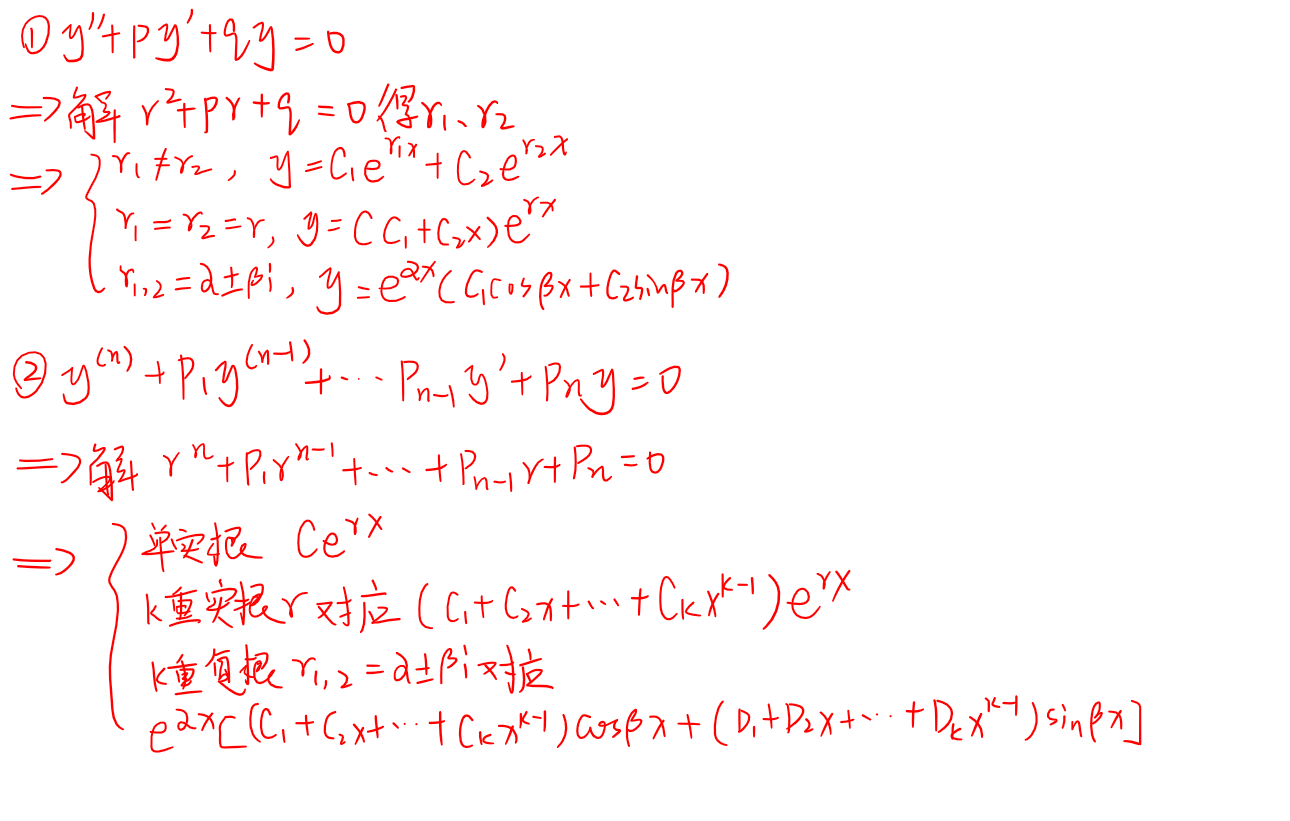 ① y''+py'+qy=0
=>解 r²+pr+q=0得r₁、r₂
=> { r₁≠r₂, y=C₁e^{r₁x}+C₂e^{r₂x}
r₁=r₂=r, y=(C₁+C₂x)e^{rx}
r₁,₂=α±βi, y=e^{αx}(C₁cosβx+C₂sinβx)
② y^{(n)}+P₁y^{(n-1)}+…P_{n-1}y'+P_n y=0
=>解 r^n+P₁r^{n-1}+…+P_{n-1}r+P_n=0
=> { 单实根 Ce^{rx}
k重实根r对应(C₁+C₂x+…+C_k x^{k-1})e^{rx}
k重复根r₁,₂=α±βi对应
e^{αx}[(C₁+C₂x+…+C_k x^{k-1})cosβx+(D₁+D₂x+…+D_k x^{k-1})sinβx]